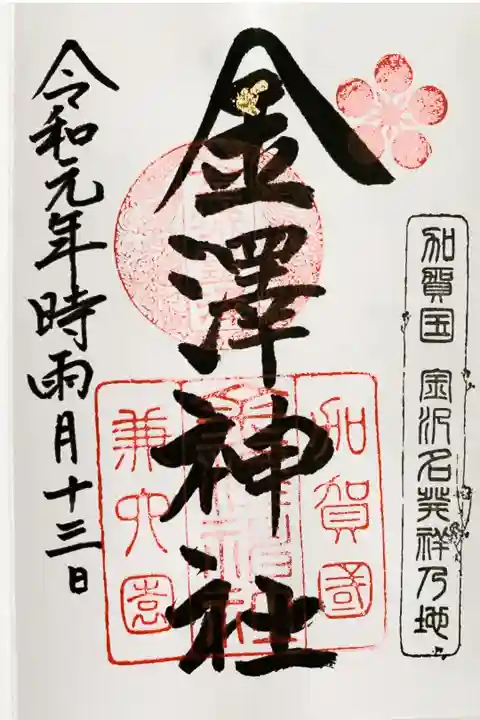 加賀国 金沢名発祥乃地
金澤神社
加賀國
金澤神社
兼六園
令和元年時雨月十三日